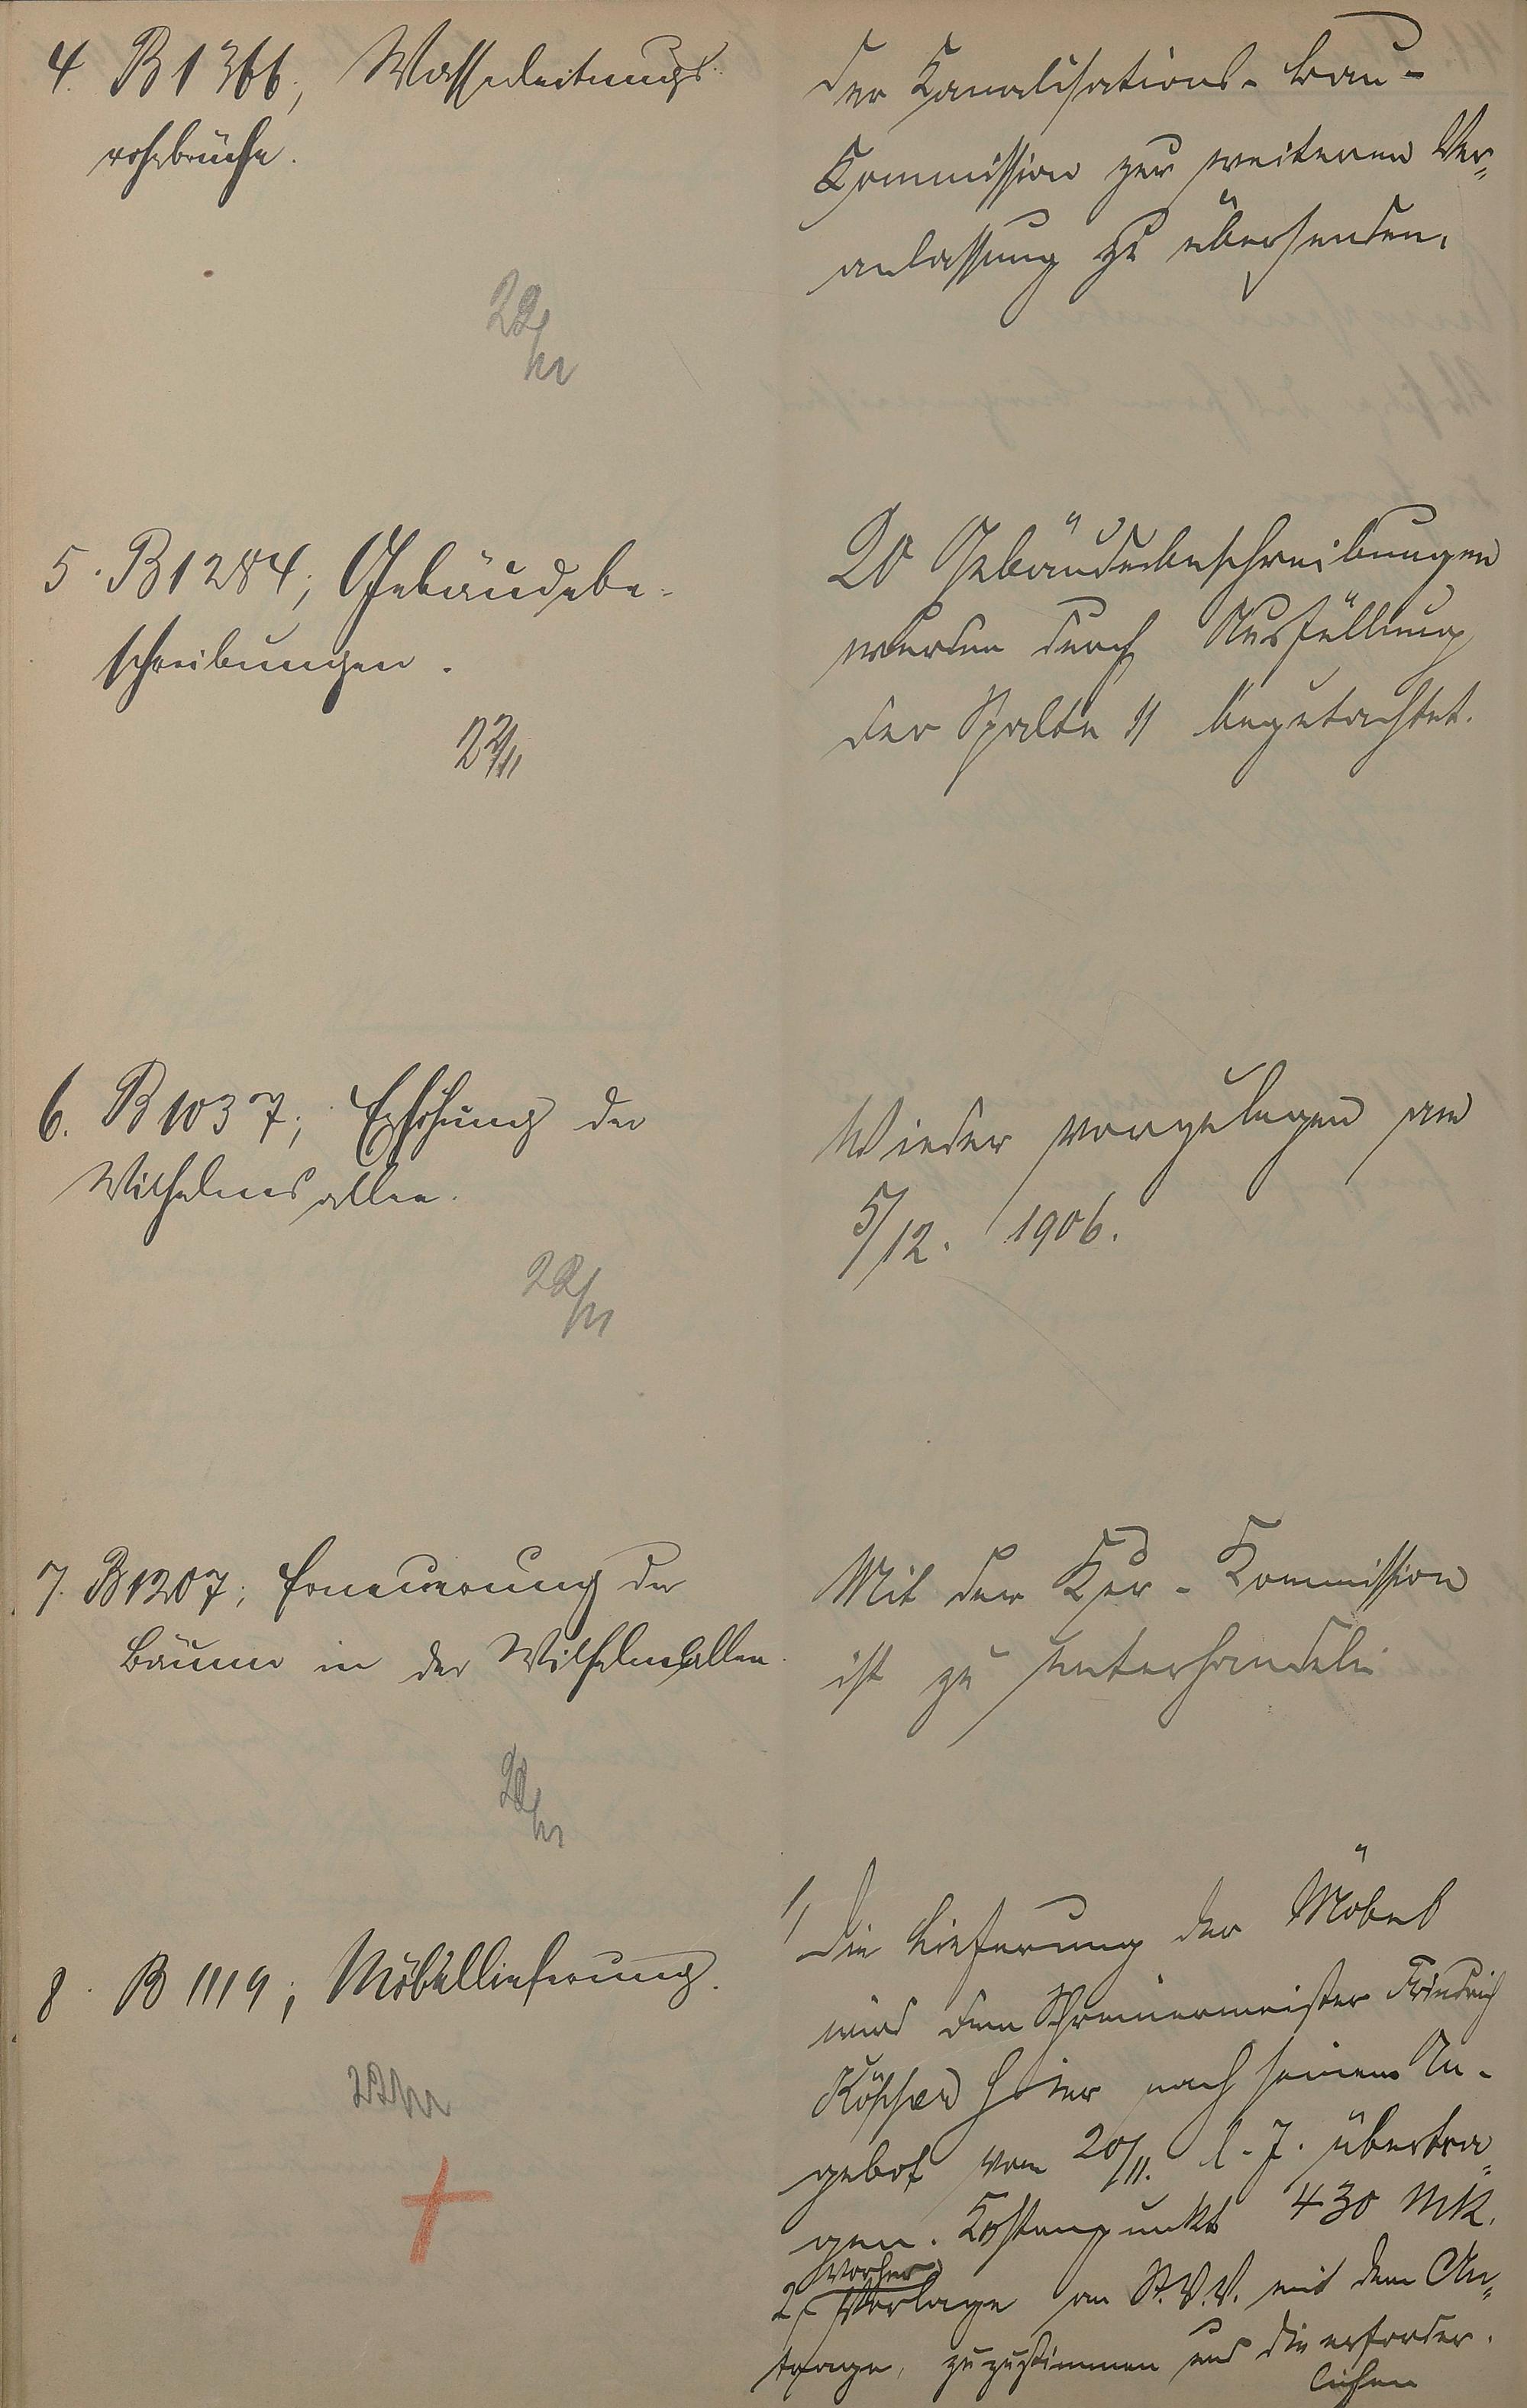 4. B 1366, Wasserleitungs-
rohrbrüche.
22/11
Der Kanalisations-Bau-
Kommission zur weiteren Ver-
anlassung zu übersenden.
5. B 1284; Gebäudebe-
schreibungen.
22/11
20 Gebäudebeschreibungen
wurden durch Ausfüllung
der Spalte 11 begutachtet.
6. B 1037; Erhöhung der
Wilhelmsallee.
22/11
Wieder vorzulegen am
5/12. 1906.
7. B 1207; Erneuerung der
Bäume in der Wilhelmsallee.
22/11
Mit der Kur-Kommission
ist zu unterhandeln
8. B 1119; Möbellieferung.
22/11
1, Die Lieferung der Möbel
wird dem Schreinermeister Friedrich
hier nach seinem An-
gebot vom 20/11. l. J. übertra-
gen. Kostenpunkt 430 Mk.
Vorher
2, Vorlage an St.V.V. mit dem An-
trage, zuzustimmen und die erforder-
lichen